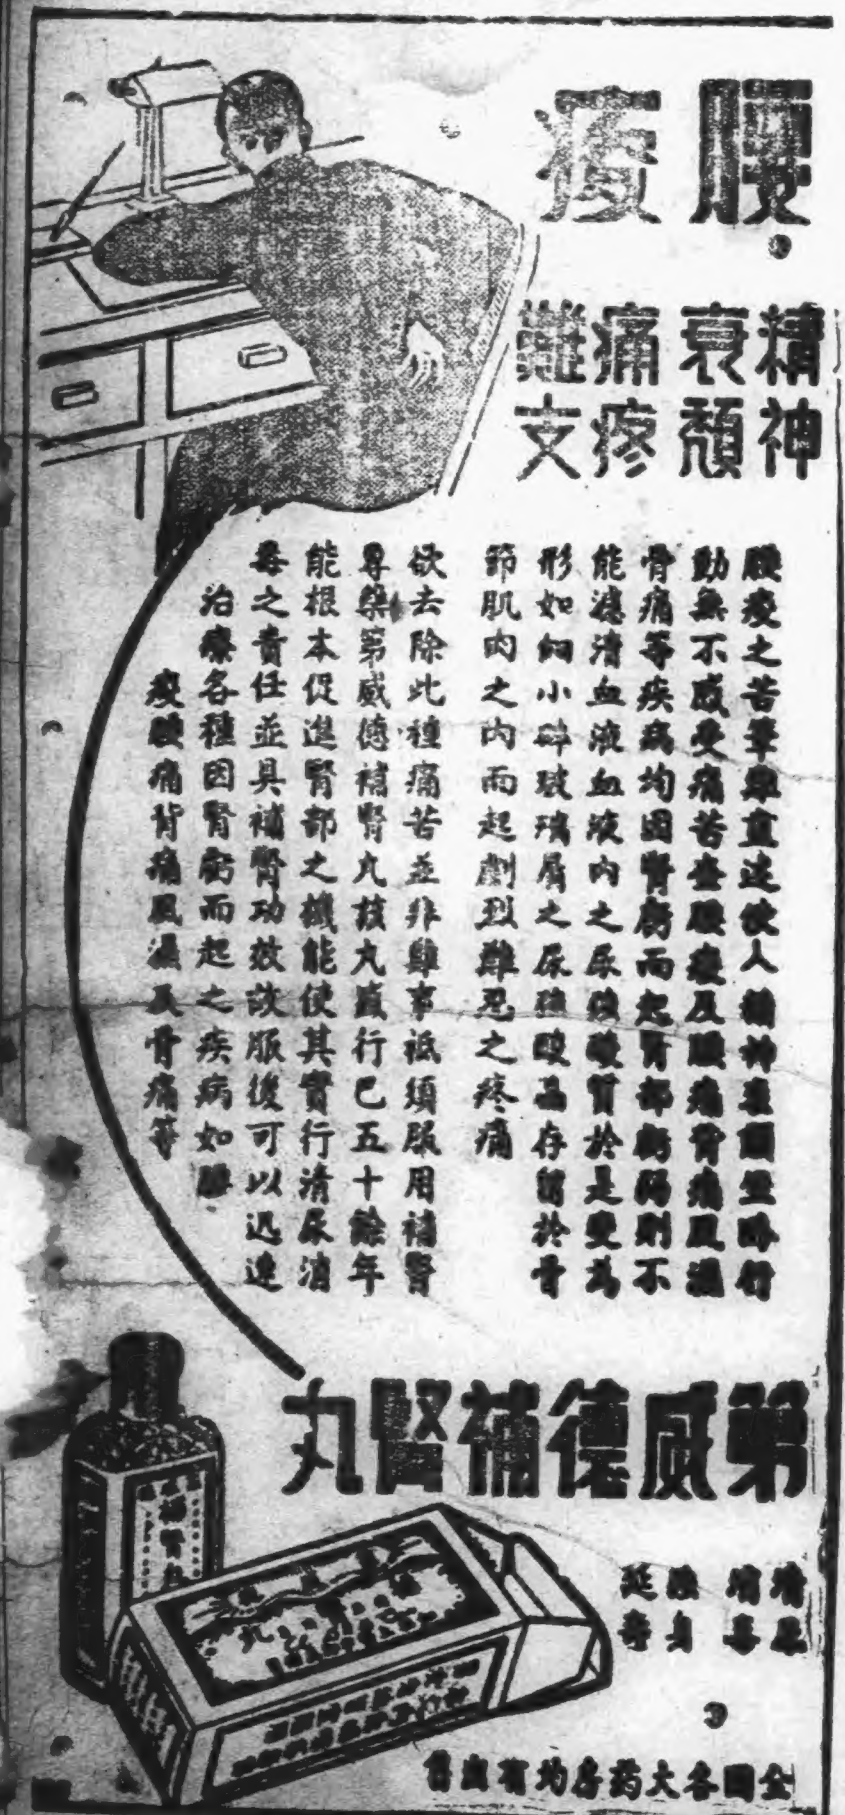 腰痠
精神
衰頹
痛疼
難支
腰痠之苦筆難直述使人精神衰頹坐臥行
動無不感受痛苦查腰痠及腰痛背痛風濕
骨痛等疾病均因腎虧而起腎部虧弱則不
能濾清血液血液內之尿硫酸質於是變為
形如細小碎玻璃屑之尿硫酸晶存留於骨
節肌肉之內而起劇烈難忍之疼痛
欲去除此種痛苦並非難事祗須服用補腎
專藥第威德補腎丸該丸盛行已五十餘年
能根本促進腎部之機能使其實行清尿消
毒之責任並具補腎功效故服後可以迅速
治療各種因腎虧而起之疾病如腰
痠腰痛背痛風濕及骨痛等
第威德補腎丸
清尿
消毒
強身
延壽
全國各大药房均有出售
補腎丸